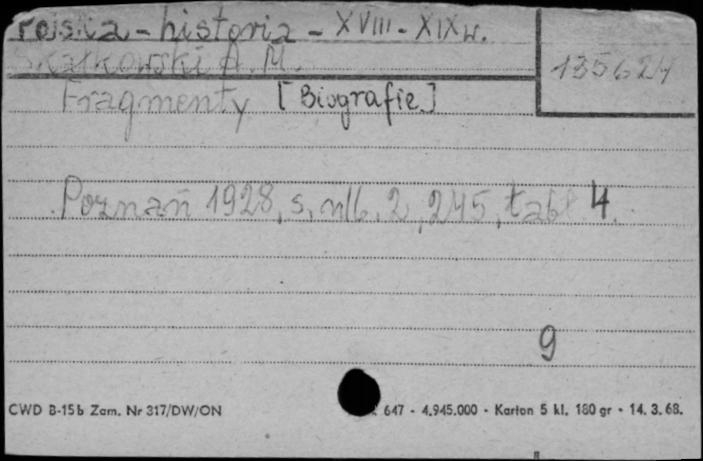 Polska - historia - XVIII - XIX w.
Skałkowski A. M.
135624
Fragmenty [Biografie]
Poznań 1928, s. nlb. 2, 245, tabl. 4.
9
CWD B-15b Zam. Nr 317/DW/ON
647 - 4.945.000 - Karton 5 kl. 180 gr - 14. 3. 68.